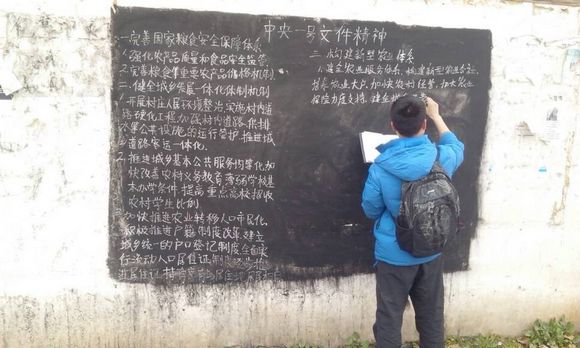 中央一号文件精神
一.完善国家粮食安全保障体系
1.强化农产品质量和食品安全监管
2.完善粮食等重要农产品价格机制
二.健全城乡发展一体化体制机制
1.开展村庄人居环境整治,实施村内道
路硬化工程,加强村内道路、供排
水等公共设施的运行管护,推进城
乡道路客运一体化.
2.推进城乡基本公共服务均等化,加
快改善农村义务教育薄弱学校基
本办学条件,提高重点高校招收
农村学生比例.
加快推进农业转移人口市民化,
积极推进户籍制度改革,建立
城乡统一的户口登记制度,全面实
行流动人口居住证制度
进居住证持有
三.构建新型农业体系
1.健全农业服务体系,构建新型农业
培养农业大户,加快农村经营,加大农业
保险力度支持,建立